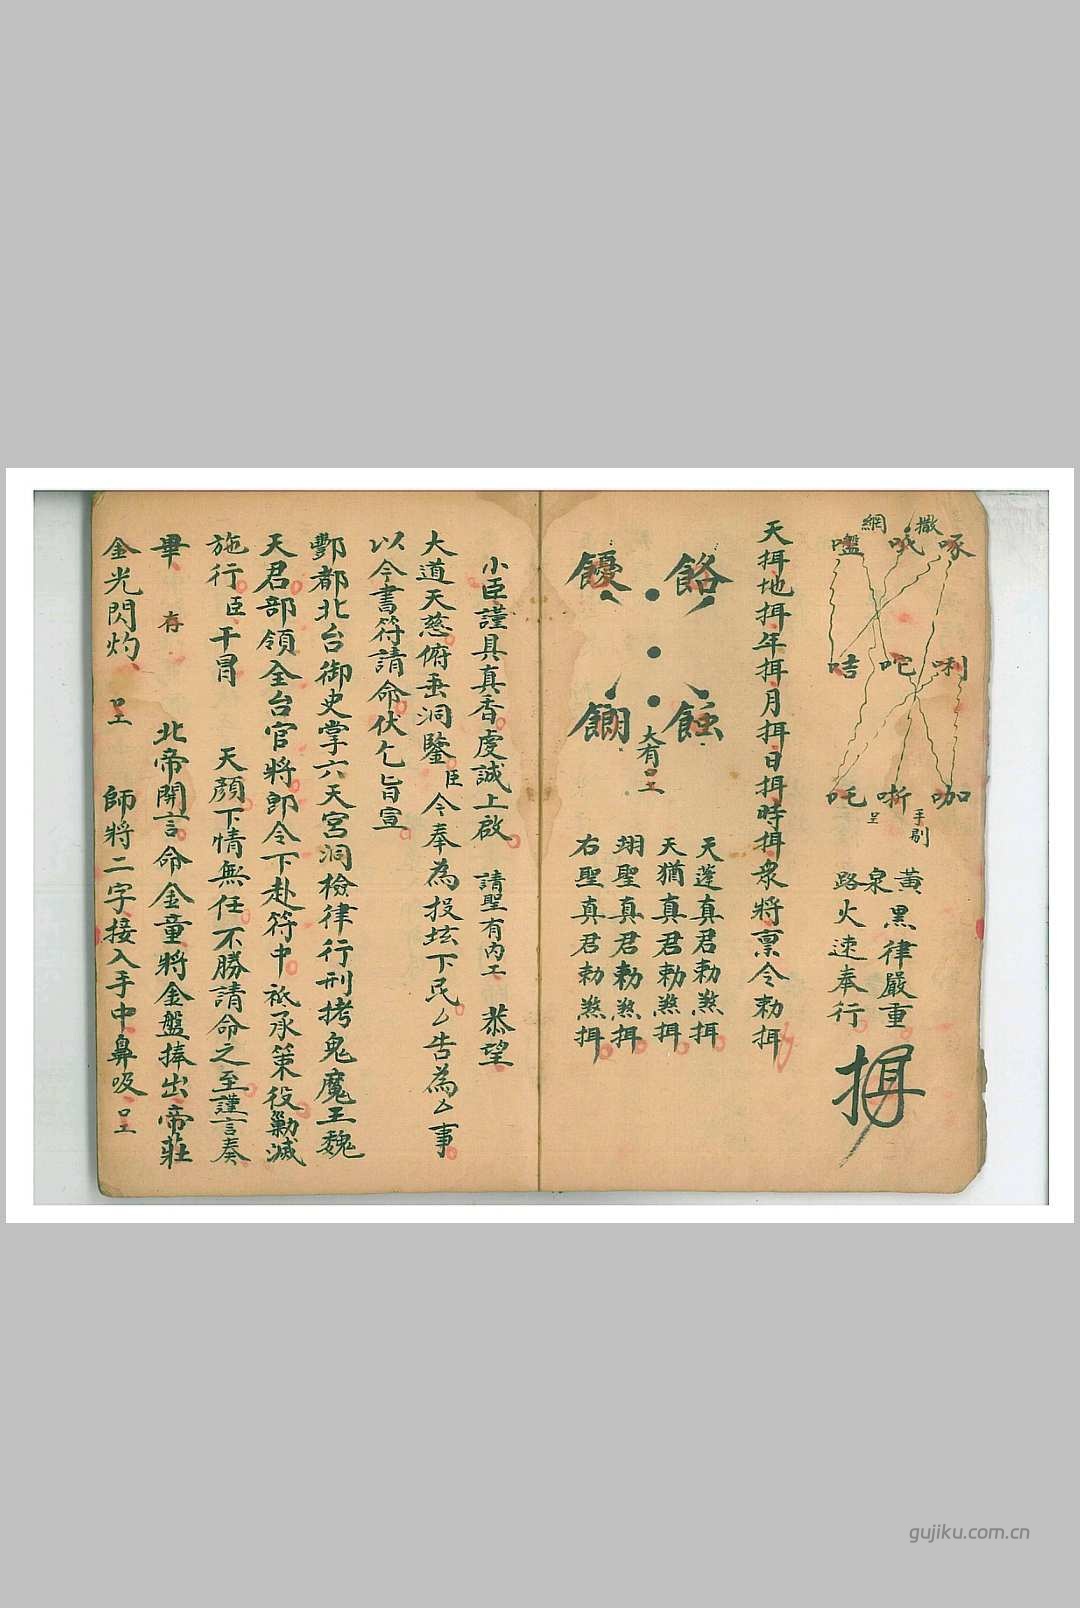 撒
網
啄
𠯢
嚂
唎
咜
咭
咖
唽
吒
手剔
呈
黃
泉
路
黑律嚴重
火速奉行
搙
天揖地揖年揖月揖日揖時揖衆將稟令勅揖
餎
饓
蝕
大有呈
天蓬真君勅煞揖
天猶真君勅煞揖
翊聖真君勅煞揖
右聖真君勅煞揖
小臣謹具真香虔誠上啟 請聖有內工 恭望
大道天慈俯垂洞鑒臣今奉為投坛下民厶告為厶事
以今書符請命伏乞旨宣
酆都北台御史掌六天宮洞檢律行刑拷鬼魔王魏
天君部領全台官將即令下赴符中祗承策役勦滅
施行臣干冒 天顏下情無任不勝請命之至謹言奏
畢 存 北帝開言命金童將金盤捧出帝莊
金光閃灼 呈 師將二字接入手中鼻吸呈
gujiku.com.cn